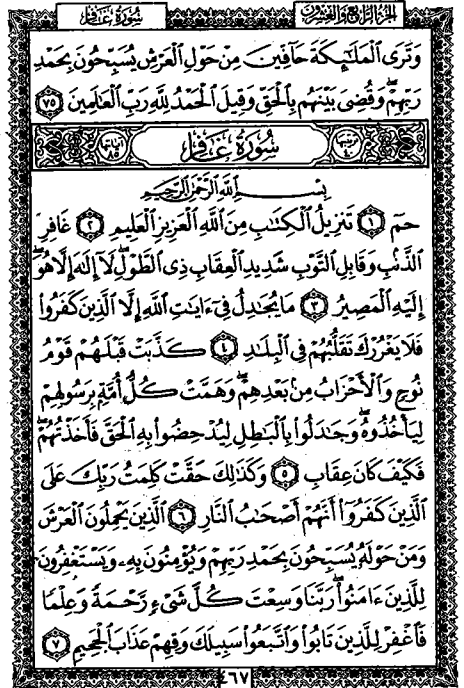 سُورَةُ غَافِر
الجزء الرابع والعشرون
وَتَرَى ٱلْمَلَٰٓئِكَةَ حَآفِّينَ مِنْ حَوْلِ ٱلْعَرْشِ يُسَبِّحُونَ بِحَمْدِ
رَبِّهِمْ ۖ وَقُضِىَ بَيْنَهُم بِٱلْحَقِّ وَقِيلَ ٱلْحَمْدُ لِلَّهِ رَبِّ ٱلْعَٰلَمِينَ ٧٥
سُورَةُ غَافِر
آياتها ٨٥
بِسْمِ ٱللَّهِ ٱلرَّحْمَٰنِ ٱلرَّحِيمِ
حمٓ ١ تَنزِيلُ ٱلْكِتَٰبِ مِنَ ٱللَّهِ ٱلْعَزِيزِ ٱلْعَلِيمِ ٢ غَافِرِ
ٱلذَّنۢبِ وَقَابِلِ ٱلتَّوْبِ شَدِيدِ ٱلْعِقَابِ ذِى ٱلطَّوْلِ ۖ لَآ إِلَٰهَ إِلَّا هُوَ ۖ
إِلَيْهِ ٱلْمَصِيرُ ٣ مَا يُجَٰدِلُ فِىٓ ءَايَٰتِ ٱللَّهِ إِلَّا ٱلَّذِينَ كَفَرُوا۟
فَلَا يَغْرُرْكَ تَقَلُّبُهُمْ فِى ٱلْبِلَٰدِ ٤ كَذَّبَتْ قَبْلَهُمْ قَوْمُ
نُوحٍ وَٱلْأَحْزَابُ مِنۢ بَعْدِهِمْ ۖ وَهَمَّتْ كُلُّ أُمَّةٍۭ بِرَسُولِهِمْ
لِيَأْخُذُوهُ ۖ وَجَٰدَلُوا۟ بِٱلْبَٰطِلِ لِيُدْحِضُوا۟ بِهِ ٱلْحَقَّ فَأَخَذْتُهُمْ ۖ
فَكَيْفَ كَانَ عِقَابِ ٥ وَكَذَٰلِكَ حَقَّتْ كَلِمَتُ رَبِّكَ عَلَى
ٱلَّذِينَ كَفَرُوٓا۟ أَنَّهُمْ أَصْحَٰبُ ٱلنَّارِ ٦ ٱلَّذِينَ يَحْمِلُونَ ٱلْعَرْشَ
وَمَنْ حَوْلَهُۥ يُسَبِّحُونَ بِحَمْدِ رَبِّهِمْ وَيُؤْمِنُونَ بِهِۦ وَيَسْتَغْفِرُونَ
لِلَّذِينَ ءَامَنُوا۟ رَبَّنَا وَسِعْتَ كُلَّ شَىْءٍ رَّحْمَةً وَعِلْمًا
فَٱغْفِرْ لِلَّذِينَ تَابُوا۟ وَٱتَّبَعُوا۟ سَبِيلَكَ وَقِهِمْ عَذَابَ ٱلْجَحِيمِ ٧
٤٦٧